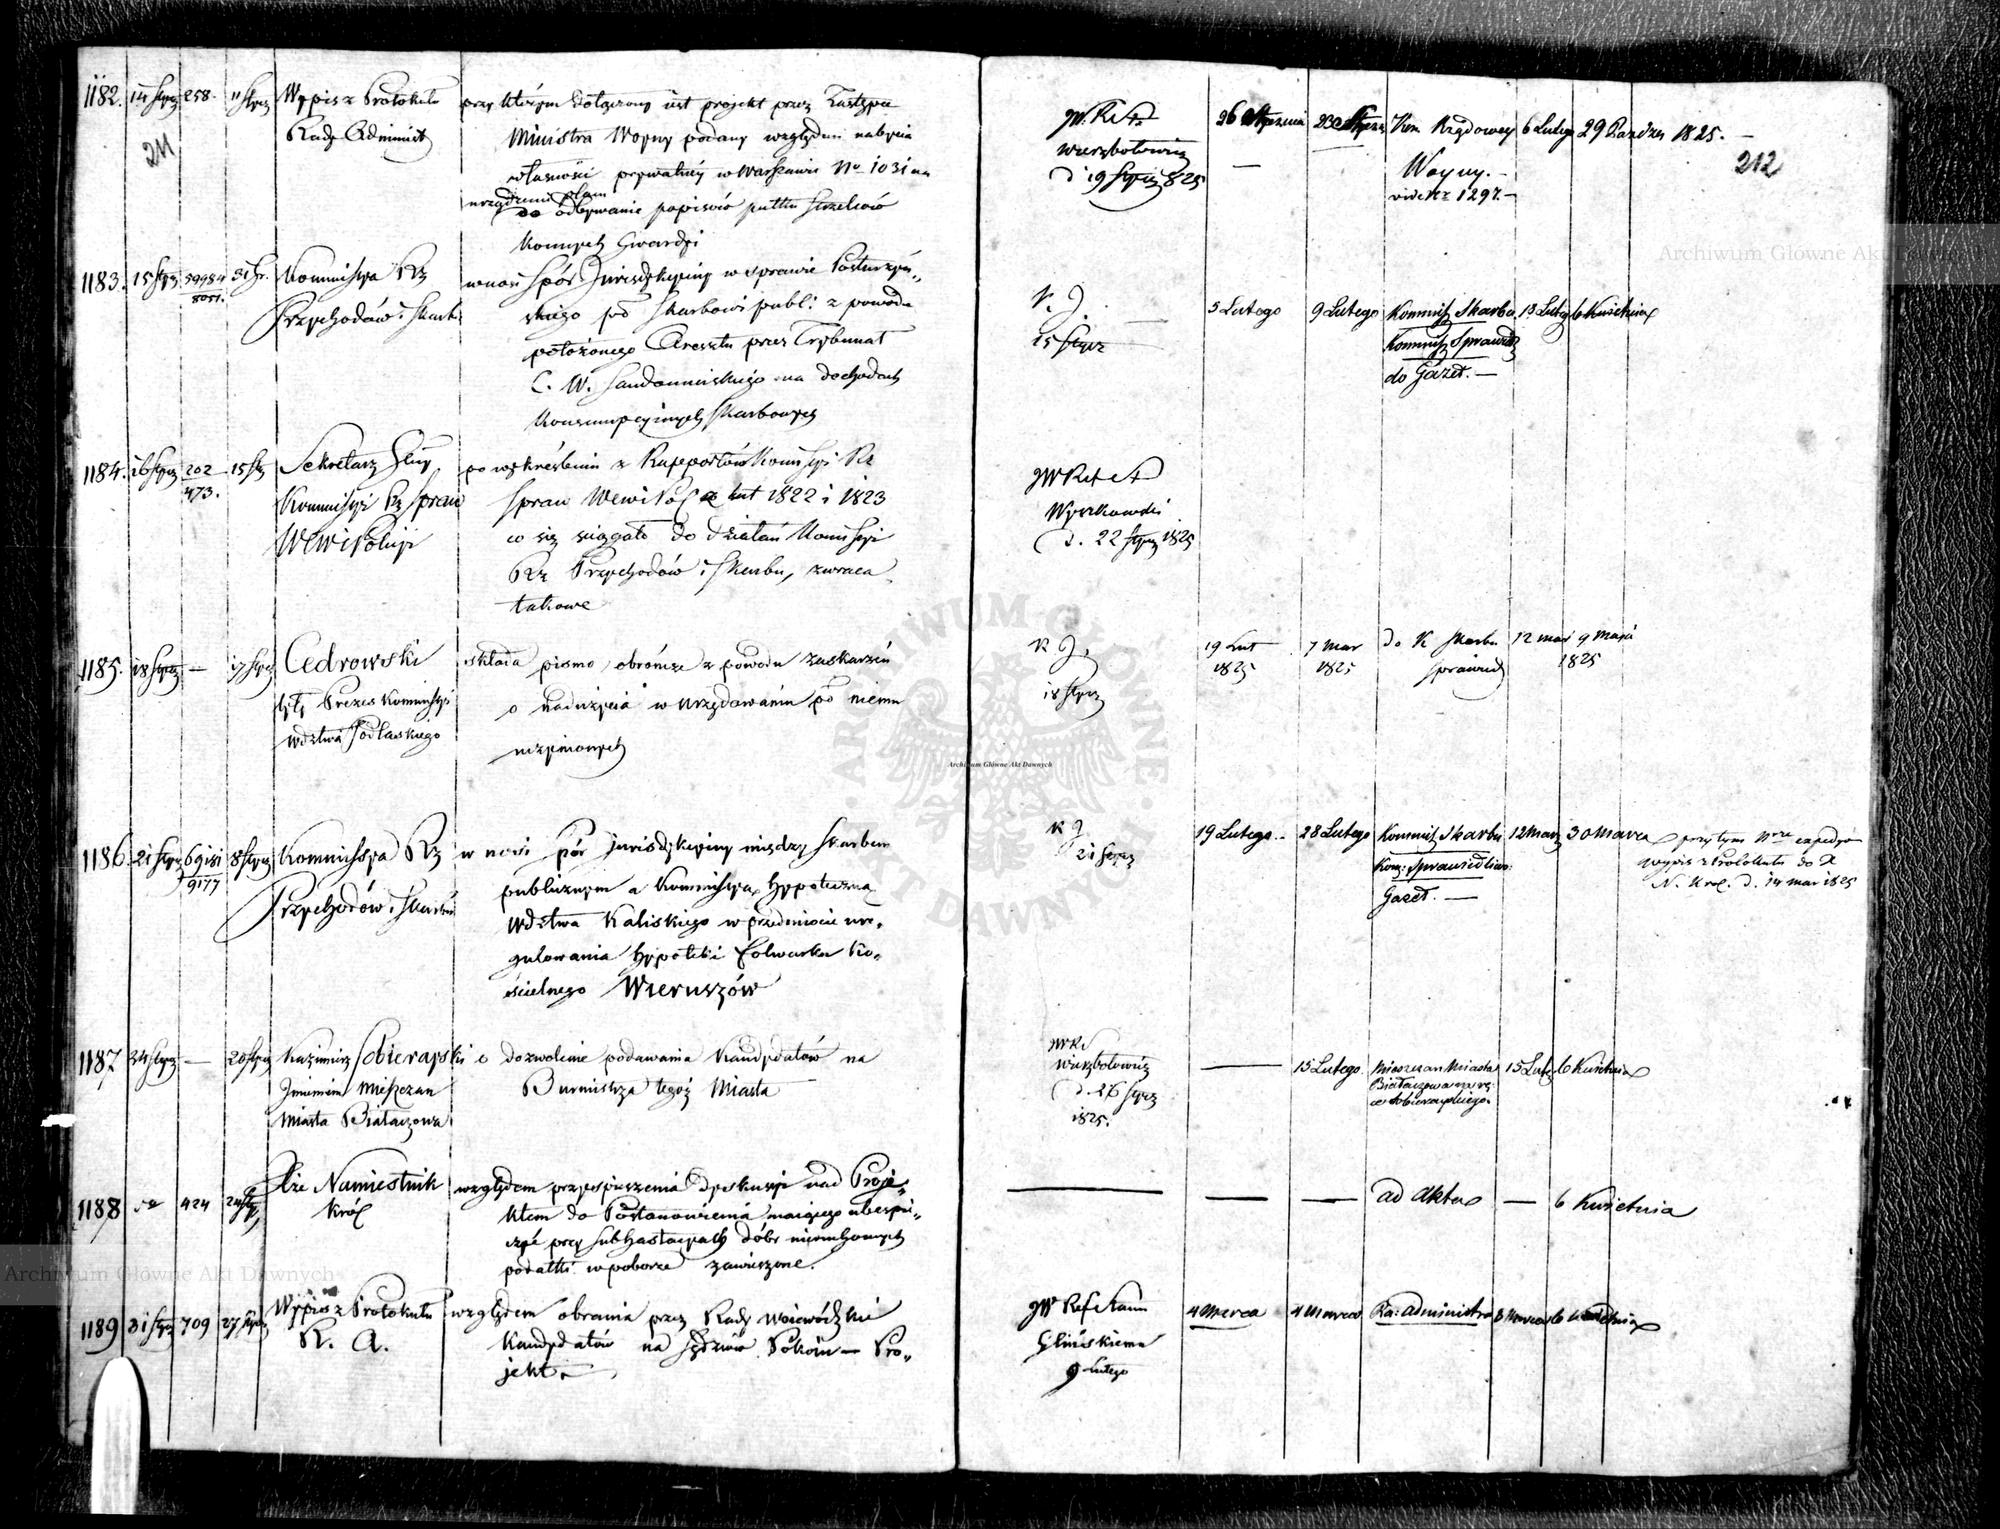 1182. 14 Stycz 258. 11 Stycz Wypis z Protokułu
Rady Administ
211
przy którym dołączony iest projekt przez Zastępce
Ministra Woyny podany względem nabycia
własności prywatney w Warszawie No 1031 na
urządzenie placu
do odbywanie popisów pułku Strzelców
Konnych Gwardyi
JW. Ref.
Wierzbołowicz
d 19 Stycz 825
26 Stycznia
Kom Rządowey 6 Lutego 29 Pazdzr 1825.
Woyny.
vide Nr 1297.
212
1183. 15 Stycz 59984
8051. 31 Gr. Kommissya Rz
Przychodów i Skarb
wnosi Spór Jurisdykcyiny w sprawie
skiego pko Skarbowi publ: z powodu
położonego Aresztu przez Trybunał
C. W. Sandomirskiego na dochodach
Konsumpcyinych Skarbowych
K. J.
15 Stycz
5 Lutego 9 Lutego Kommiss Skarbu 13 Luteg 6 Kwietnia
Kommiss Sprawied
do Gazet.
1184. 16 Stycz 202
473. 15 St Sekretarz Jlny
Kommissyi Rz Spraw
WEwi Policyi
po wykreśleniu z Rapportów Komissyi Rz
Spraw Wewi Pol z lat 1822 i 1823
co się sciągało do działań Komissyi
Rz Przychodów i Skarbu, zwraca
takowe
JW Refet
Wyczkowski
d. 22 Stycz 1825
1185. 18 Stycz — 17 Stycz Cedrowski
były Prezes Kommissyi
Wdztwa Podlaskiego
składa pismo obrończe z powodu zaskarżeń
o nadużycia w urzędowaniu pko niemu
uczynionych
K J.
18 Stycz
19 Lut 7 Mar do K Skarbu 12 mar 9 Maja
1825 1825 Sprawied 1825
1186. 21 Stycz 69151
9177 8 Stycz Kommissya Rz
Przychodów i Skarbu
wnosi spór Jurisdykcyiny między Skarbem
publicznym a Kommissyą Hypoteczną
Wdztwa Kaliskiego w przedmiocie ure-
gulowania Hypoteki folwarku Ko-
ścielnego Wieruszów
K J
21 Stycz
19 Lutego. 28 Lutego Kommiss Skarbu 12 Marz 30 Marca przy tym Nrze expedyo
Kom: Sprawiedliw: wypis z Protokułu do X
Gazet. — N. Król. d. 14 mar 1825
1187 24 Stycz — 20 Stycz Kazimierz Sobierayski
Imieniem Mieszczan
Miasta Białaczowa
o dozwolenie podawania Kandydatów na
Burmistrza tegoż Miasta
JWRef
Wierzbołowicz
d. 26 Stycz
1825.
— 15 Lutego. Mieszczan Miasta 15 Luteg 6 Kwietnia
Białaczowa na rę:
ce Sobierayskiego.
1188 424 24 Stycz Xże Namiestnik
Król
względem przyspieszenia dyskusyi nad Proje-
ktem do Postanowienia maiącego ubespie-
czyć przy subhastacyach dóbr nieruchomych
podatki w poborze zawieszone.
— — — ad Akta — 6 Kwietnia
1189 31 Stycz 709 27 Stycz Wypis z Protokułu
R. A.
względem obrania przez Rady Woiewódzkie
Kandydatów na Sędziów Pokoiu — Pro-
jekt.
JW Referendm
Glińskiemu
9 Lutego
4 Marca 4 Marca Ra: Administra 8 Marca 6 Kwietnia
Archiwum Główne Akt Dawnych
Archiwum Główne Akt Dawnych
Archiwum Główne Akt Dawnych
ARCHIWUM GŁÓWNE AKT DAWNYCH